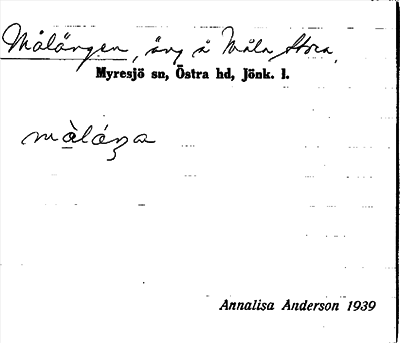 Målängen, äng å Måla Stora,
Myresjö sn, Östra hd, Jönk. l.
Annalisa Anderson 1939